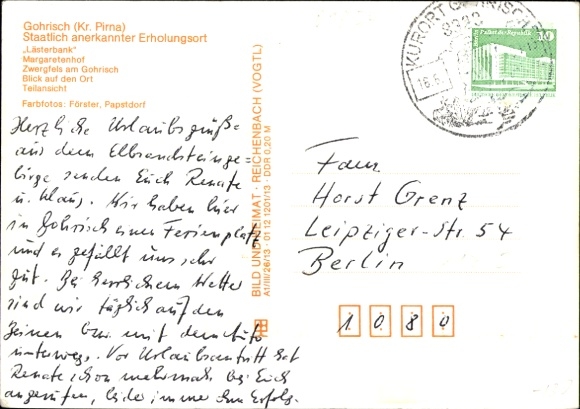 Gohrisch (Kr. Pirna)
Staatlich anerkannter Erholungsort
„Lästerbank"
Margaretenhof
Zwergfels am Gohrisch
Blick auf den Ort
Teilansicht
Farbfotos: Förster, Papstdorf
Herzliche Urlaubsgrüße
aus dem Elbsandsteinge-
birge senden Euch Renate
u. Klaus. Wir haben hier
in Gohrisch einen Ferienplatz
und es gefällt uns sehr
gut. Bei herrlichem Wetter
sind wir täglich auf den
Beinen bzw. mit dem Auto
unterwegs. Vor Urlaubsantritt hat
Renate schon mehrmals bei Euch
angerufen, leider immer ohne Erfolg.
BILD UND HEIMAT · REICHENBACH (VOGTL)
A1/III/26/13 · 01 12 1201/13 · DDR 0,20 M
KURORT GOHRISCH
Palast der Republik
10
Fam.
Horst Grenz
Leipziger-Str. 54
Berlin
1080